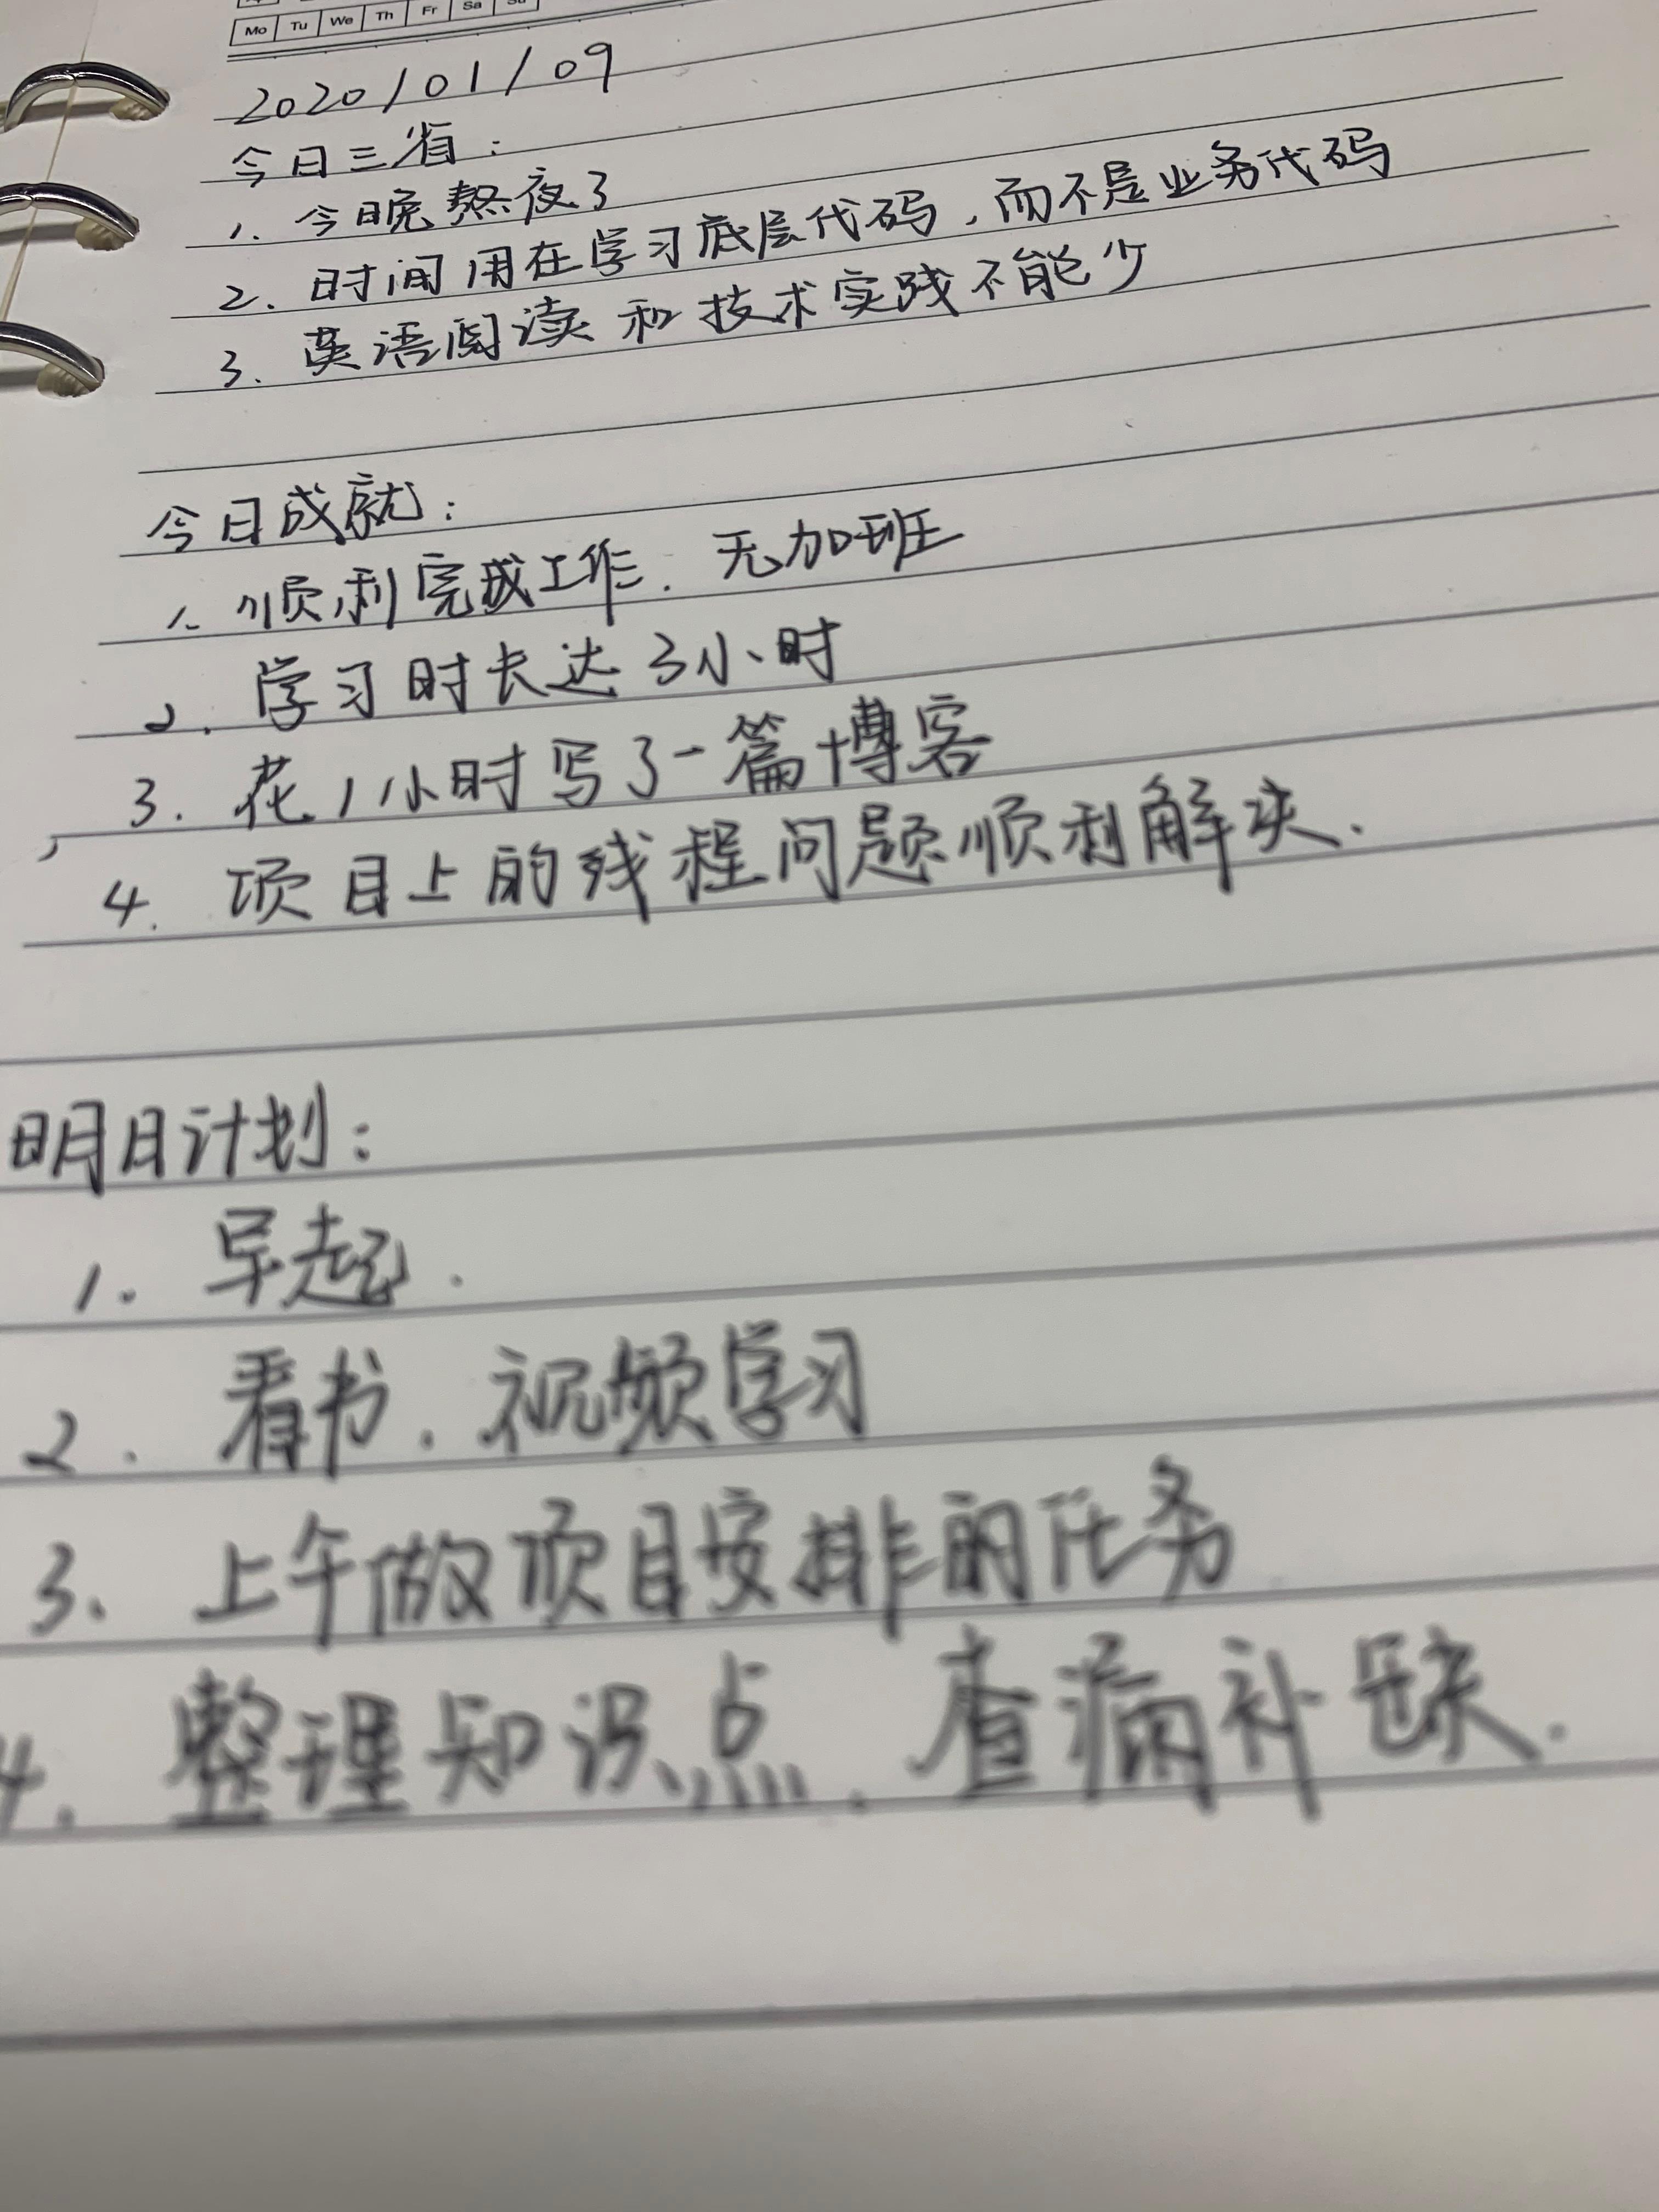 Mo Tu We Th Fr Sa Su
2020/01/09
今日三省:
1. 今晚熬夜了
2. 时间用在学习底层代码,而不是业务代码
3. 英语阅读和技术实践不能少
今日成就:
1. 顺利完成工作. 无加班
2. 学习时长达3小时
3. 花1小时写了一篇博客
4. 项目上的线程问题顺利解决.
明日计划:
1. 早起.
2. 看书. 视频学习
3. 上午做项目安排的任务
4. 整理知识点. 查漏补缺.